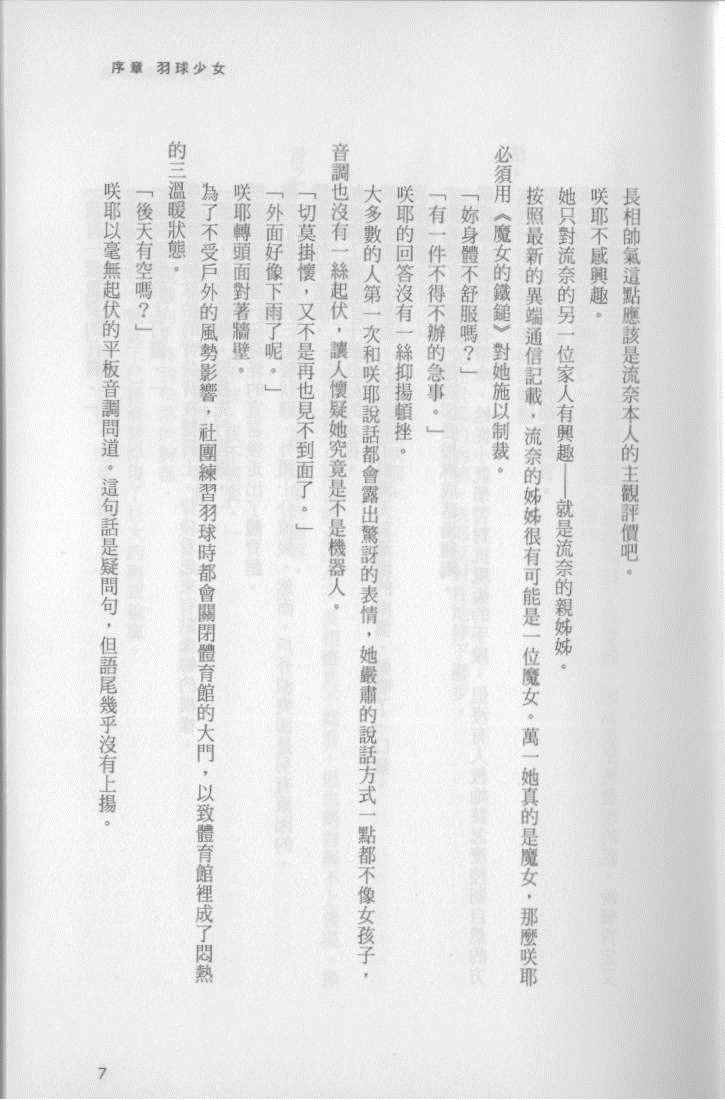 序章 羽球少女
長相帥氣這點應該是流奈本人的主觀評價吧。
咲耶不感興趣。
她只對流奈的另一位家人有興趣——就是流奈的親姊姊。
按照最新的異端通信記載，流奈的姊姊很有可能是一位魔女。萬一她真的是魔女，那麼咲耶
必須用《魔女的鐵鎚》對她施以制裁。
「妳身體不舒服嗎？」
「有一件不得不辦的急事。」
咲耶的回答沒有一絲抑揚頓挫。
大多數的人第一次和咲耶說話都會露出驚訝的表情，她嚴肅的說話方式一點都不像女孩子，
音調也沒有一絲起伏，讓人懷疑她究竟是不是機器人。
「切莫掛懷，又不是再也見不到面了。」
「外面好像下雨了呢。」
咲耶轉頭面對著牆壁。
為了不受戶外的風勢影響，社團練習羽球時都會關閉體育館的大門，以致體育館裡成了悶熱
的三溫暖狀態。
「後天有空嗎？」
咲耶以毫無起伏的平板音調問道。這句話是疑問句，但語尾幾乎沒有上揚。
7